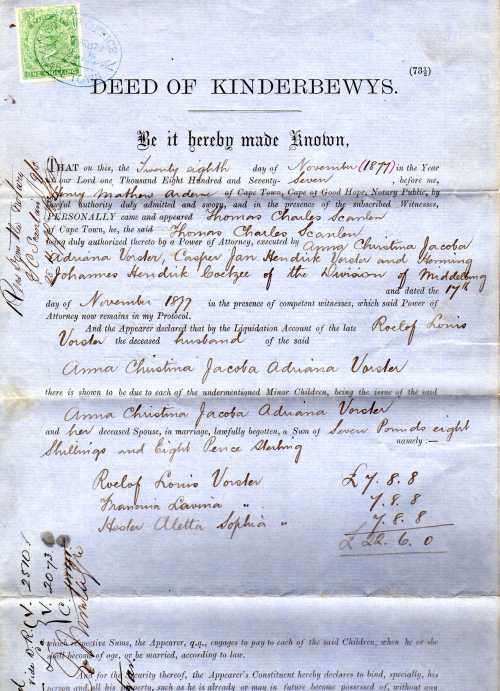 ONE SHILLING
(73½)
DEED OF KINDERBEWYS.
Be it hereby made Known,
THAT on this, the Twenty eighth day of November (1877) in the Year
of our Lord one Thousand Eight Hundred and Seventy-Seven, before me,
Henry Mathew Arderne of Cape Town, Cape of Good Hope, Notary Public, by
lawful authority duly admitted and sworn, and in the presence of the subscribed Witnesses,
PERSONALLY came and appeared Thomas Charles Scanlen
of Cape Town, he, the said Thomas Charles Scanlen
being duly authorized thereto by a Power of Attorney, executed by Anna Christina Jacoba
Adriana Vorster, Casper Jan Hendrik Vorster and Henning
Johannes Hendrik Coetzee of the Division of Middelburg
and dated the 17th
day of November 1877 in the presence of competent witnesses, which said Power of
Attorney now remains in my Protocol.
And the Appearer declared that by the Liquidation Account of the late Roelof Louis
Vorster the deceased husband of the said
Anna Christina Jacoba Adriana Vorster
there is shown to be due to each of the undermentioned Minor Children, being the issue of the said
Anna Christina Jacoba Adriana Vorster
and her deceased Spouse, in marriage, lawfully begotten, a Sum of Seven Pounds eight
Shillings and Eight Pence Sterling namely :—
Roelof Louis Vorster £ 7. 8. 8
Francina Lavina " 7. 8. 8
Hester Aletta Sophia " 7. 8. 8
£ 22. 6. 0
which respective Sums, the Appearer, q.q., engages to pay to each of the said Children, when he or she
shall become of age, or be married, according to law.
And for the Security thereof, the Appearer's Constituent hereby declares to bind, specially, his
person and all his property, such as he is already or may in future become possessed of, without